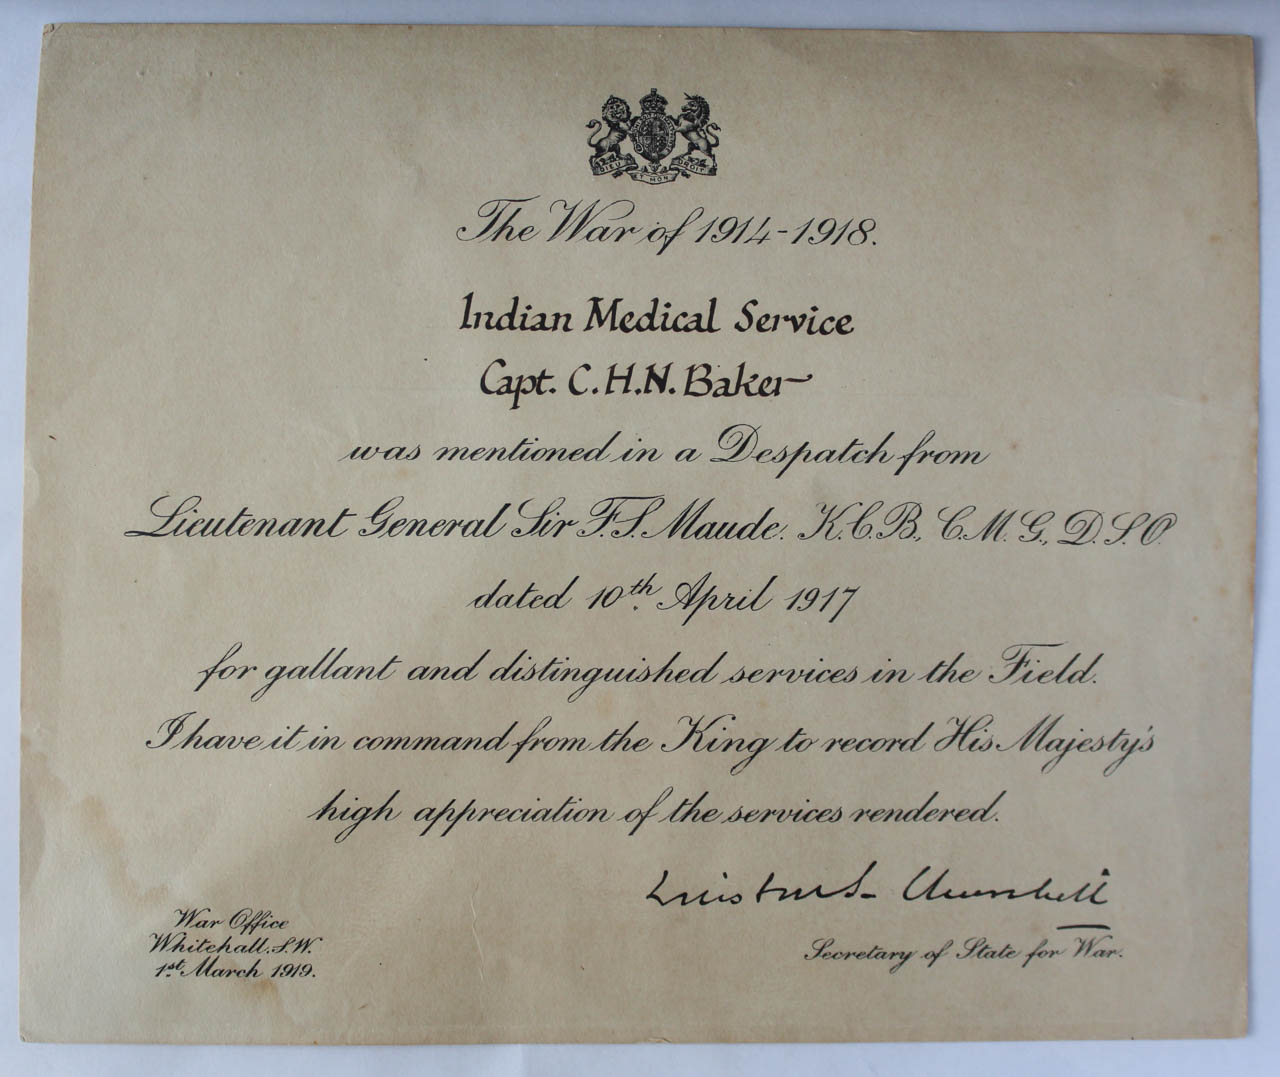 DIEU ET MON DROIT
The War of 1914-1918.
Indian Medical Service
Capt. C.H.N. Baker
was mentioned in a Despatch from
Lieutenant General Sir F.S. Maude. K.C.B., C.M.G., D.S.O.
dated 10th. April 1917
for gallant and distinguished services in the Field.
I have it in command from the King to record His Majesty's
high appreciation of the services rendered.
Winston S. Churchill
War Office
Whitehall. S.W.
1st. March 1919.
Secretary of State for War.